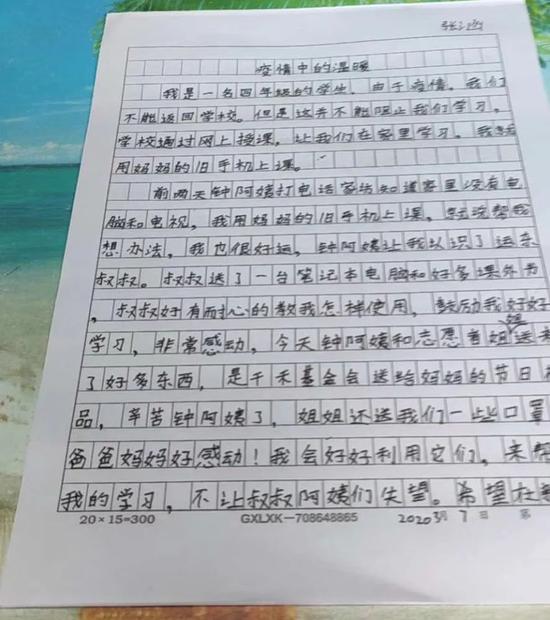 疫情中的温暖
我是一名四年级的学生，由于疫情，我们
不能返回学校。但是这并不能阻止我们学习，
学校通过网上授课，让我们在家里学习。我就
用妈妈的旧手机上课。
前两天钟阿姨打电话家访知道家里没有电
脑和电视，我用妈妈的旧手机上课，就说帮我
想办法，我也很好运，钟阿姨让我认识了运东
叔叔。叔叔送了一台笔记本电脑和好多课外书
，叔叔好有耐心的教我怎样使用，鼓励我好好
学习，非常感动，今天钟阿姨和志愿者姐姐送来
了好多东西，是千禾基金会送给妈妈的节日
品，辛苦钟阿姨了，姐姐还送我们一些口罩
爸爸妈妈好感动！我会好好利用它们，来帮
我的学习，不让叔叔阿姨们失望。希望在
20×15=300 GXLXK—708648865 2020 3月 7日 第